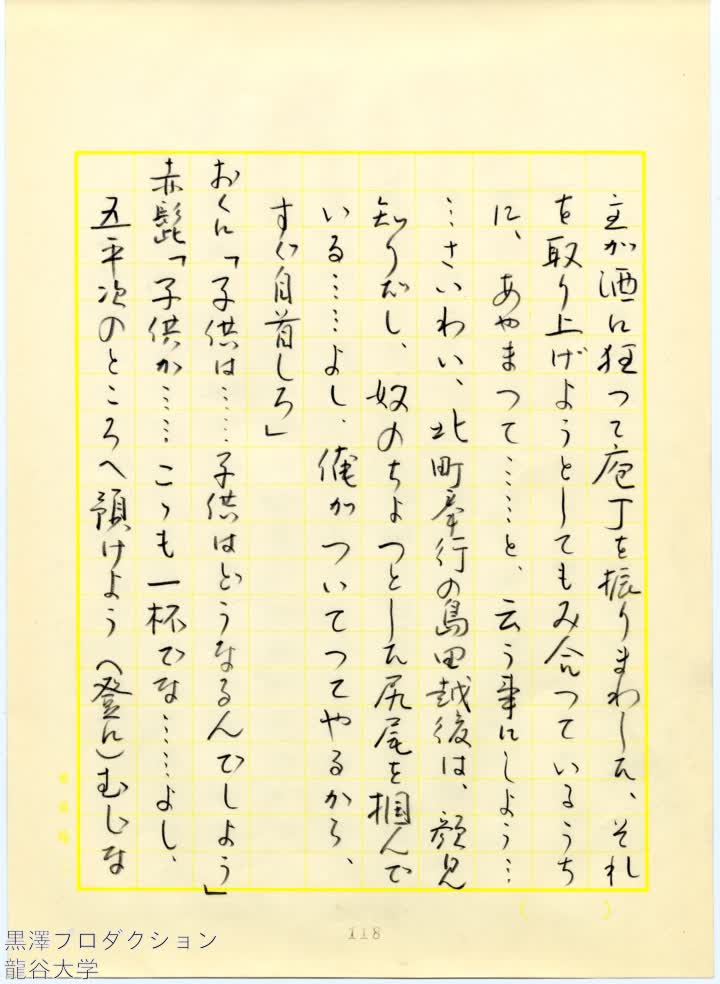 主が酒に狂つて庖丁を振りまわした、それ
を取り上げようとしてもみ合つているうち
に、あやまつて……と、云う事にしよう…
…さいわい、北町奉行の島田越後は、顔見
知りだし、奴のちよつとした尻尾を掴んで
いる……よし、俺がついてつてやるから、
すぐ自首しろ」
おくに「子供は……子供はどうなるんでしよう」
赤髭「子供か…… こゝも一杯でな……よし、
五平次のところへ預けよう（登に）むじな
118
黒澤プロダクション
龍谷大学